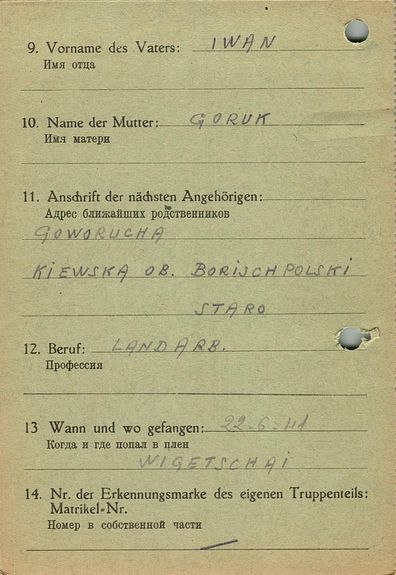 9. Vorname des Vaters: IWAN
Имя отца
10. Name der Mutter: GORUK
Имя матери
11. Anschrift der nächsten Angehörigen:
Адрес ближайших родственников
GOWORUCHA
KIEWSKA OB. BORISCHPOLSKI
STARO
12. Beruf: LANDARB.
Профессия
13 Wann und wo gefangen: 22.6.41
Когда и где попал в плен
WIGETSCHAI
14. Nr. der Erkennungsmarke des eigenen Truppenteils:
Matrikel-Nr.
Номер в собственной части
—